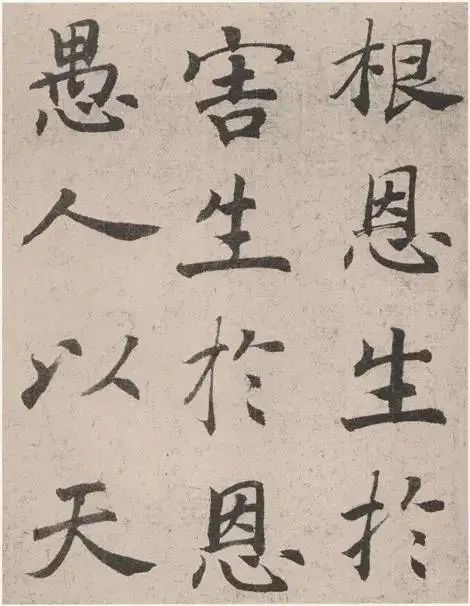 根恩生於
害生於恩
愚人以天